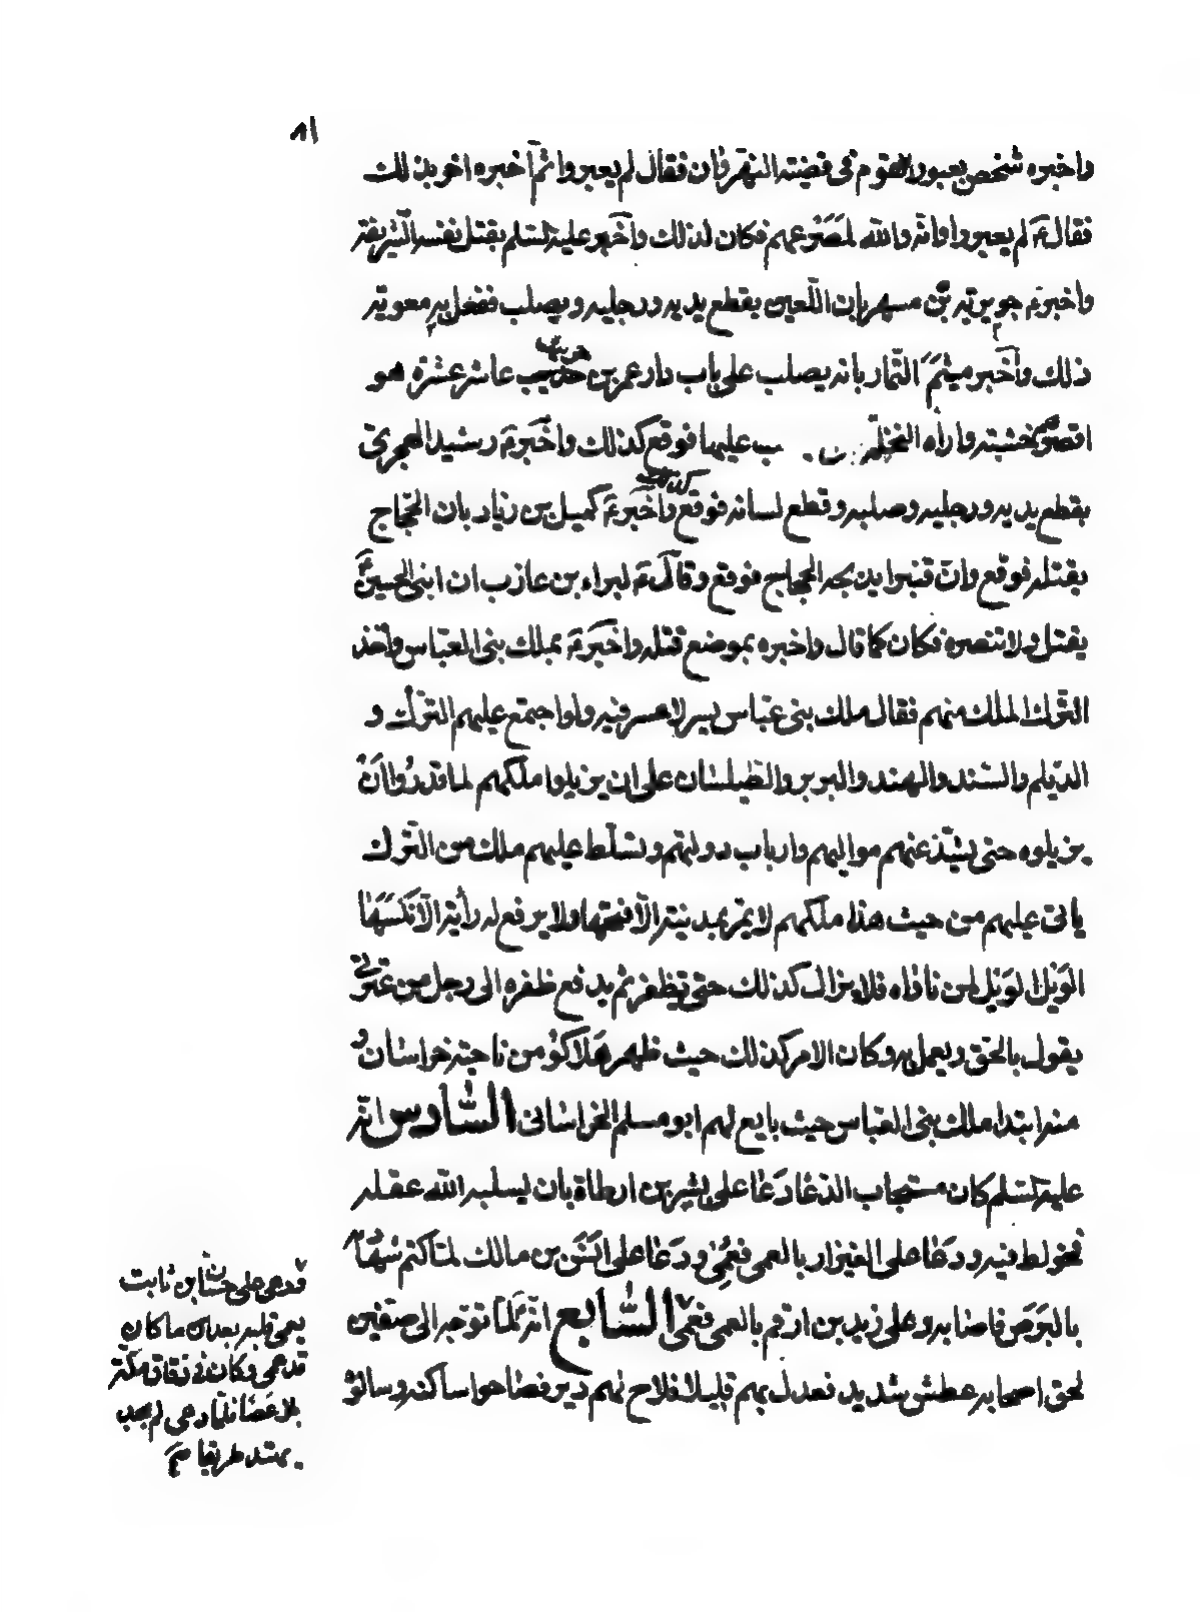 ٨١
واخبره شخص بعبور القوم فى قضية النهروان فقال لم يعبروا ثم اخبره اخر بذلك
فقال ع لم يعبروا وانه والله لمصرعهم فكان لذلك واخبر عليه السلم بقتل نفسه الشريفة
واخبر جويرية بن مسهر بان اللعين يقطع يديه ورجليه ويصلب ففعل به معوية
ذلك واخبر ميثم التمار بانه يصلب على باب دار عمر بن حريث عاشر عشرة هو
اقصرهم خشبة واراه النخلة ب عليها فوقع كذلك واخبر ع رشيد الهجرى
بقطع يديه ورجليه وصلبه وقطع لسانه فوقع كذلك واخبر ع كميل بن زياد بان الحجاج
يقتله فوقع وان قنبرا يذبحه الحجاج فوقع وقال ع لبراء بن عازب ان ابنى الحسين ع
يقتل ولا تنصره فكان كما قال واخبره بموضع قتله واخبر ع بملك بنى العباس واخذ
الترك الملك منهم فقال ملك بنى عباس يسر لا عسر فيه ولو اجتمع عليهم الترك و
الديلم والسند والهند والبربر والطيلسان على ان يزيلوا ملكهم لما قدروا ان
يزيلوه حتى يشذ عنهم مواليهم وارباب دولتهم ويسلط عليهم ملك من الترك
ياتى عليهم من حيث هذا ملكهم لا يمر بمدينة الا فتحها ولا يرفع له راية الا نكسها
الويل الويل لمن ناواه فلا يزال كذلك حتى يظفر ثم يدفع ظفره الى رجل من عترتى
يقول بالحق ويعمل به وكان الامر كذلك حيث ظهر هلاكو من ناحية خراسان و
منه ابتدا ملك بنى العباس حيث بايع لهم ابو مسلم الخراسانى السادس انه
عليه السلم كان مستجاب الدعا دعا على بشير بن ارطاة بان يسلبه الله عقله
فخولط فيه ودعا على الغيزار بالعمى فعمى ودعا على انس بن مالك لما كتم شهاة
بالبرص فاصابه وعلى زيد بن ارقم بالعمى فعمى السابع انه لما توجه الى صفين
لحق اصحابه عطش شديد فعدل بهم قليلا فلاح لهم دير فصاحوا ساكنه وسالوه
ودعى على حسان بن ثابت
بعمى قلبه بعد ان ما كان
قد عمى وكان فى زقاق مكة
بلا عصا فلما دعى لم يجد
يهتد طريقا صم